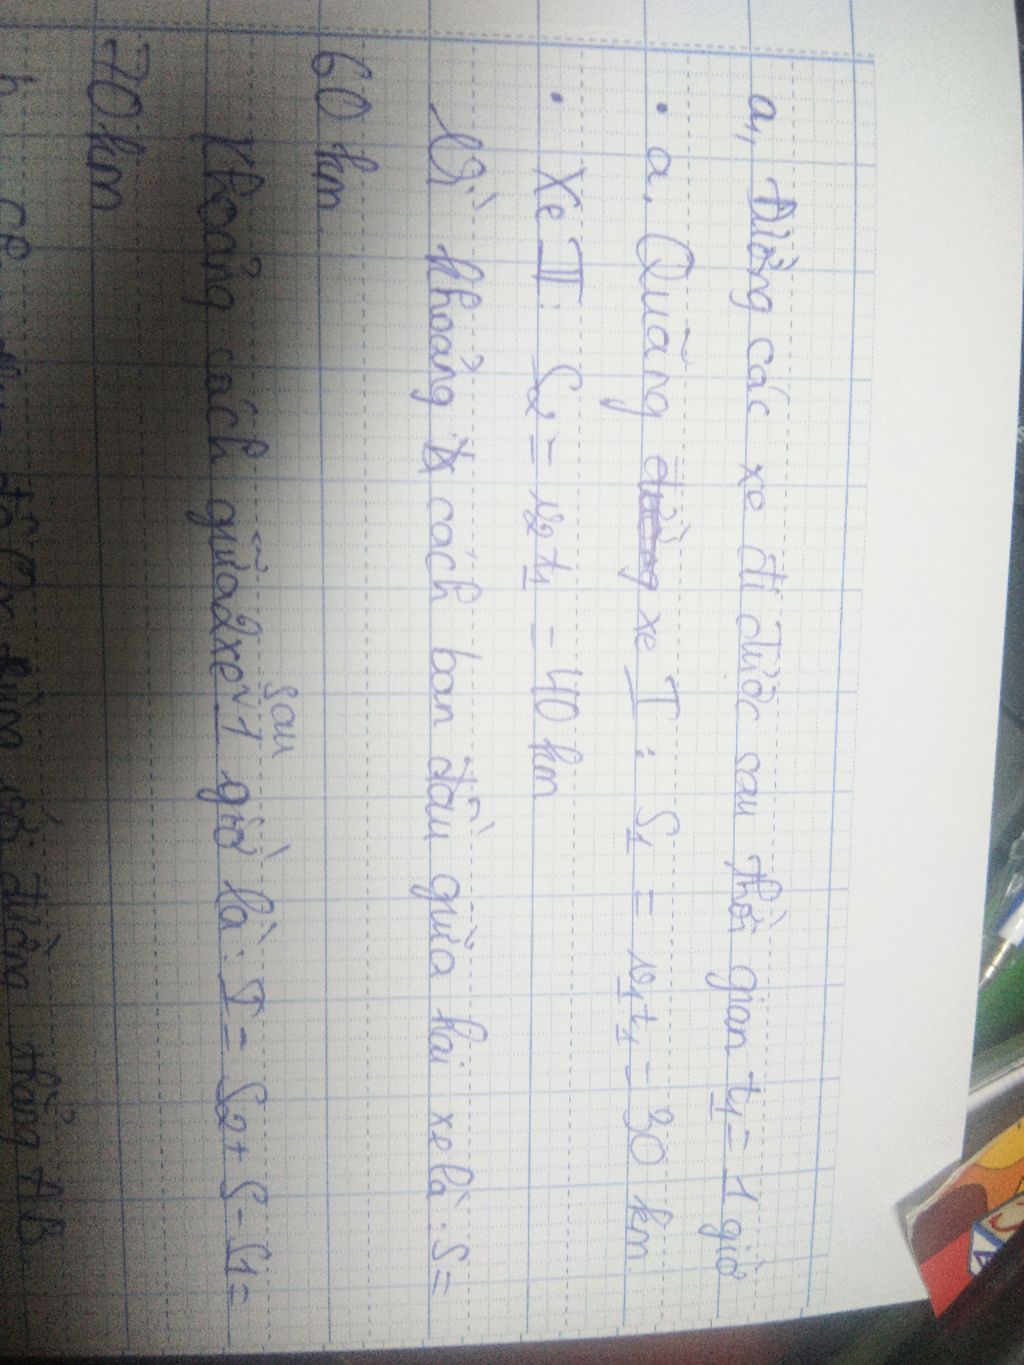 a, Đường các xe đi được sau thời gian t1 = 1 giờ
• a. Quãng đường xe I : S1 = v1t1 = 30 km
• Xe II: S2 = v2t1 = 40 km
Vì khoảng cách ban đầu giữa hai xe là : S =
60 km
Khoảng cách giữa 2 xe sau 1 giờ là : I = S2 + S - S1 =
70 km